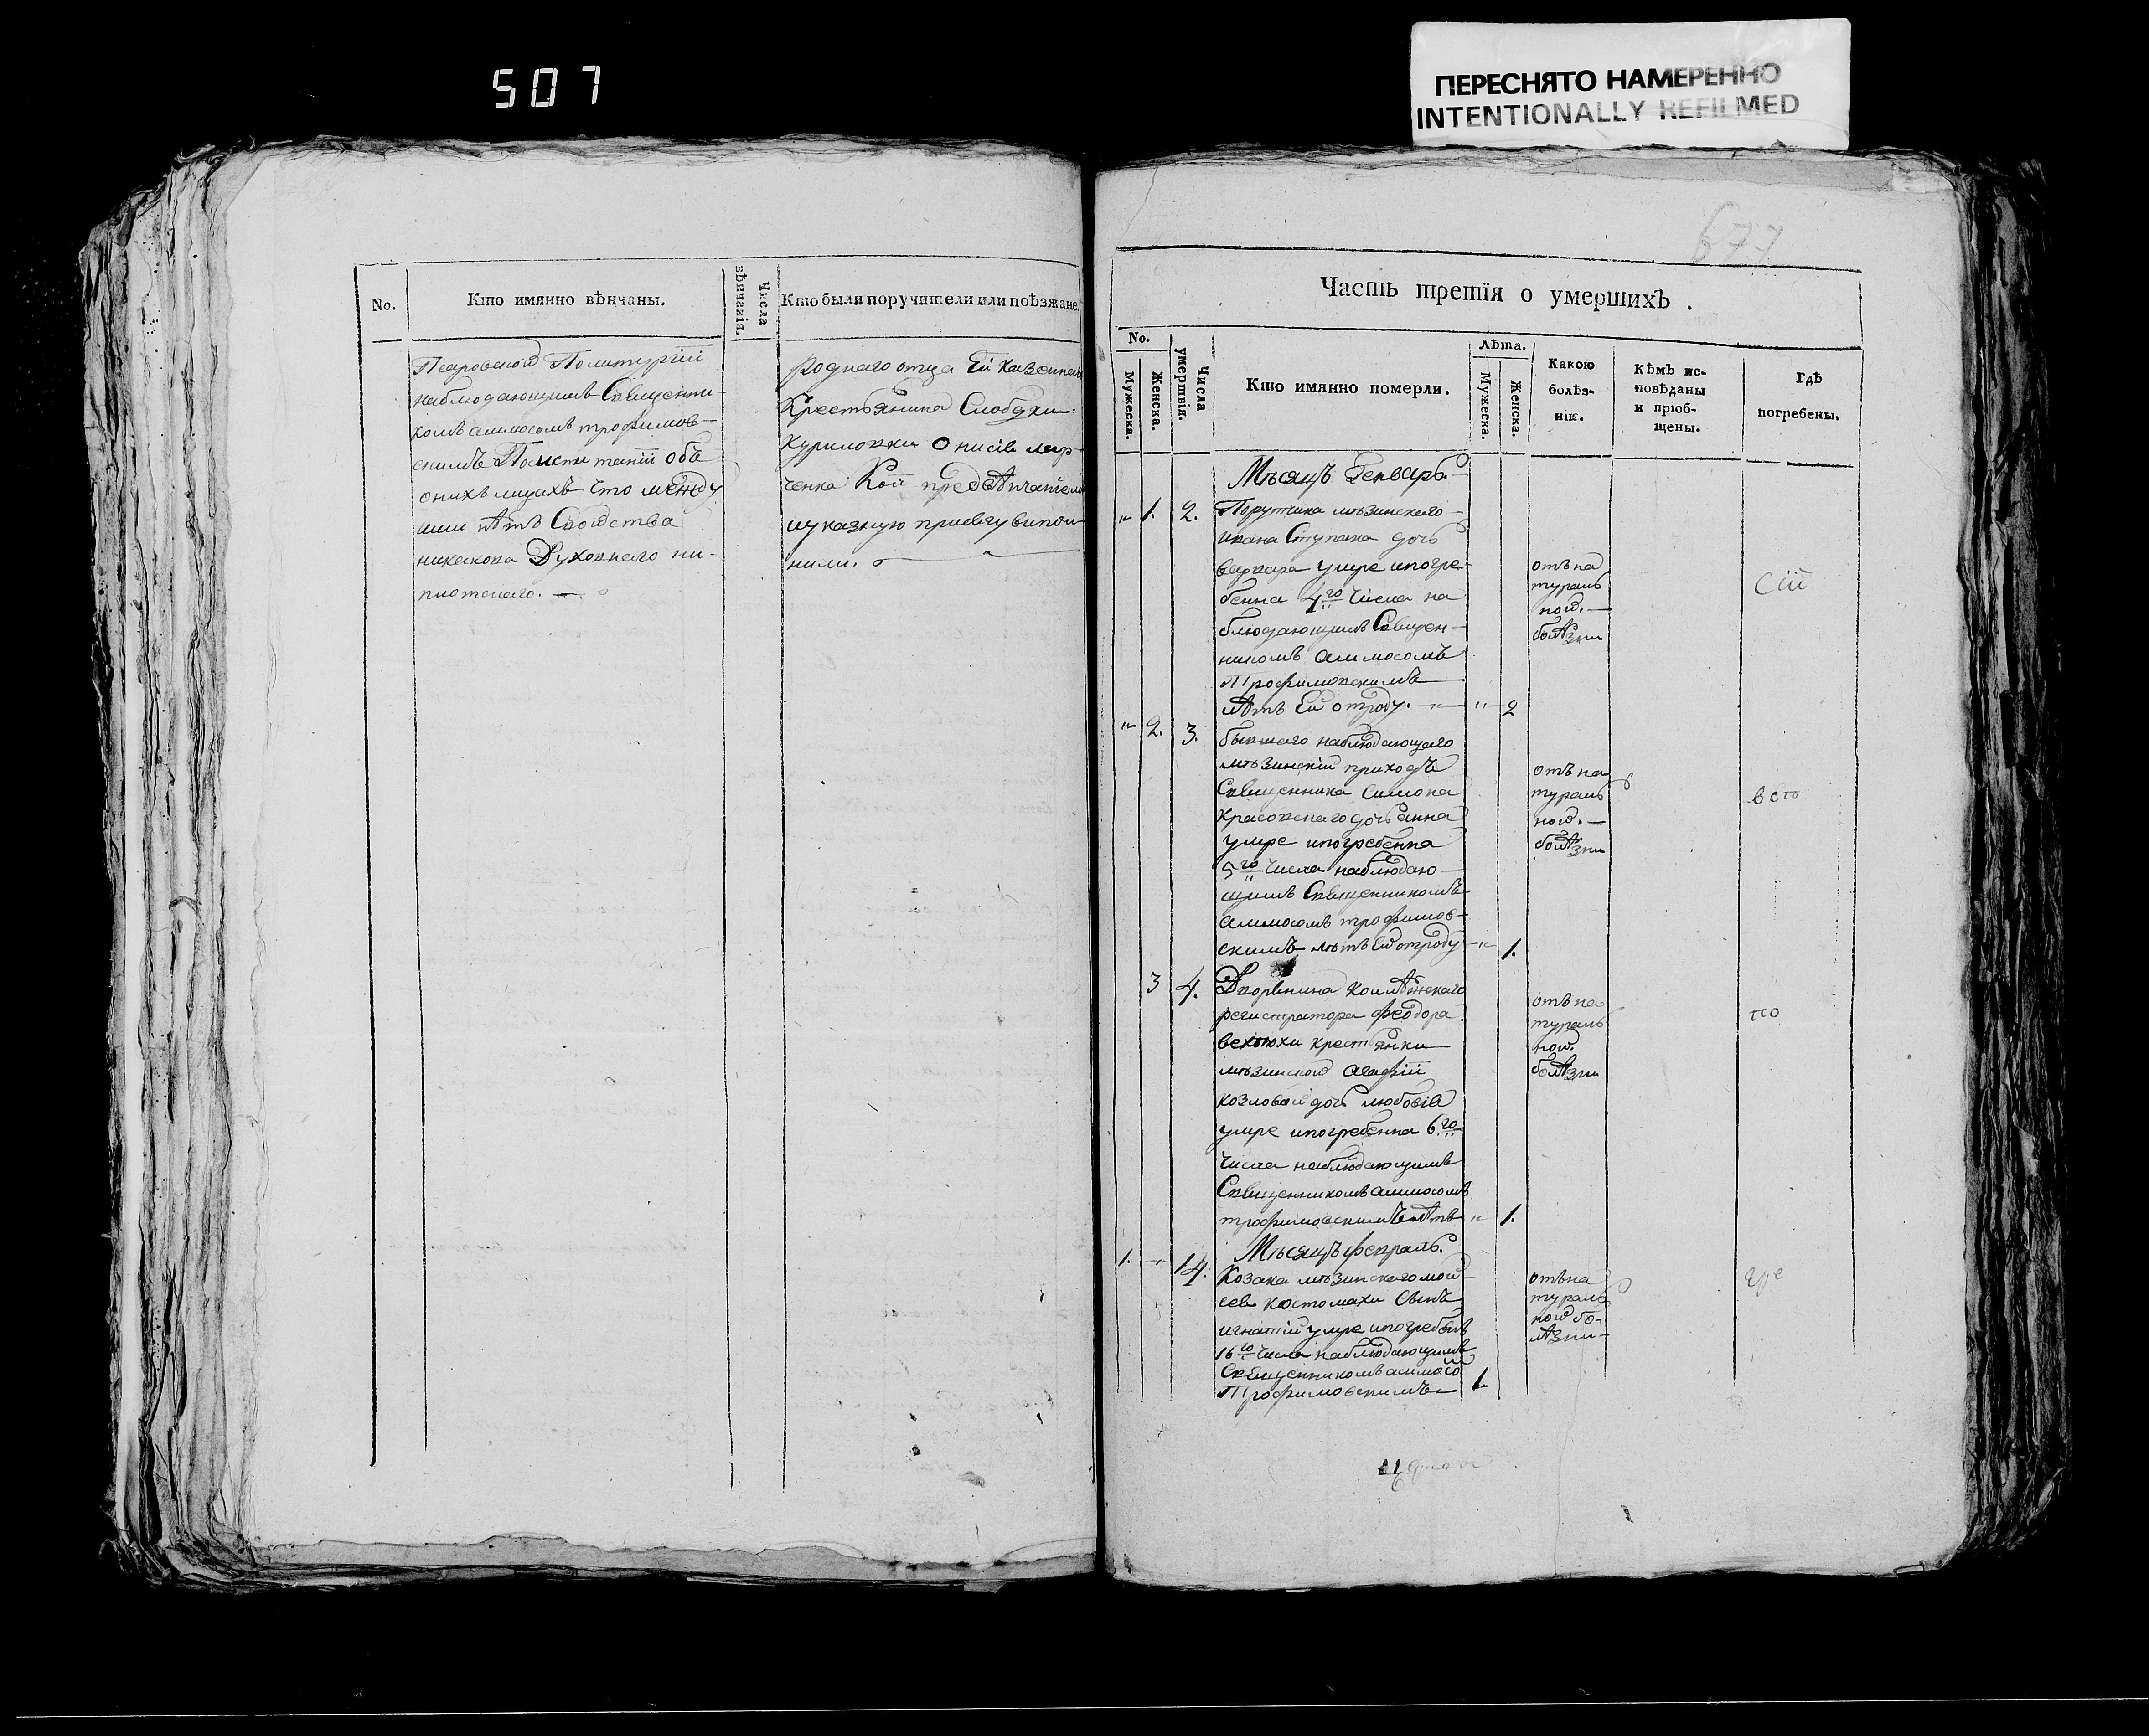 507
ПЕРЕСНЯТО НАМЕРЕННО
INTENTIONALLY REFILMED
677
No.
Кто имянно вѣнчаны.
Числа вѣнчанія.
Кто были поручители или поѣзжане.
Петровской По литургіи
наблюдающимъ Священни-
комъ
скимъ По
онихъ лицахъ что между
ими нѣтъ Свойства
никакова Духовнаго ни-
плотскаго. —
роднаго отца Ей казеннаго
Крестьянина Слободки
Куриловки
ченка Кои предвѣнчаніемъ
иуказную присягу випол
нили.
Часть третія о умершихъ.
No.
Мужеска.
Женска.
Числа умертвія.
Кто имянно померли.
Лѣта.
Мужеска.
Женска.
Какою болѣз-
нію.
Кѣмъ ис-
повѣданы
и пріоб-
щены.
Гдѣ
погребены.
Мѣсяцъ Генварь.
" 1. 2. Порутчика мѣзинскаго
ивана Ступака дочь
варвара умре ипогре-
бенна 4го числа на
блюдающимъ Священ-
никомъ
Трофимовскимъ
лѣтъ Ей отроду. " 2
отъ на
тураль
ной. —
болѣзни
" 2. 3. бывшаго наблюдающаго
мѣзинскій приходъ
Священника Симона
Красовскаго дочь анна
умре ипогребенна
5го числа наблюдаю
щимъ Священникомъ
трофимов-
скимъ лѣтъ Ей отроду " 1.
отъ на
тураль
ной. —
болѣзни
3 4. Дворянина Коллѣжскаго
регистратора феодора
крестьянки
мѣзинской Агафіи
козловой дочь
умре ипогребенна 6го
числа наблюдающимъ
Священникомъ
трофимовскимъ лѣтъ " 1.
отъ на
тураль
ной.
болѣзни
Мѣсяцъ февраль.
1. 14. Козака мѣзинскаго мой
сея костомахи Синъ
игнатій умре ипогребенъ
16го числа наблюдающимъ
Священникомъ
Трофимовскимъ 1.
отъ на
тураль
ной бо-
лѣзни